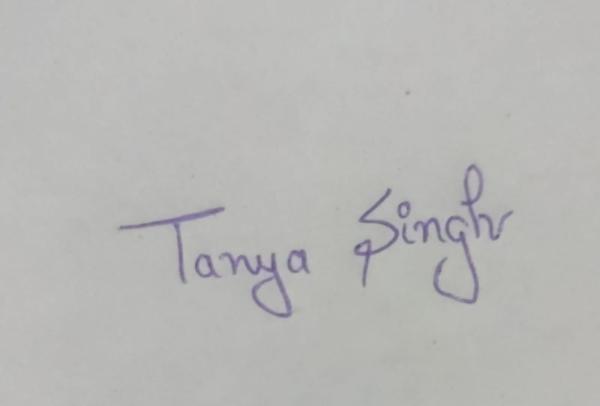 Tanya Singh